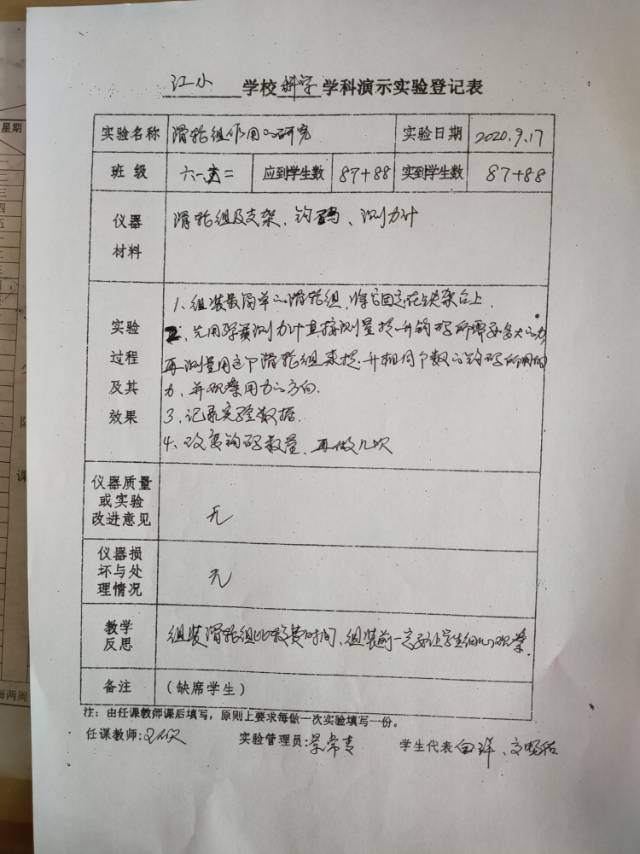 江小 学校 科学 学科演示实验登记表
实验名称 滑轮组作用的研究 实验日期 2020.9.17
班级 六一 二 应到学生数 87+88 实到学生数 87+88
仪器材料 滑轮组及支架、钩码、测力计
实验过程及其效果
1、组装最简单的滑轮组,将它固定在铁架台上.
2、先用弹簧测力计直接测量提升钩码所需要多大的力
再测量用这个滑轮组来提升相同个数的钩码所用的
力,并观察用力的方向.
3、记录实验数据.
4、改变钩码数量,再做几次
仪器质量或实验改进意见 无
仪器损坏与处理情况 无
教学反思 组装滑轮组比较费时间,组装前一定要让学生细心观察.
备注 (缺席学生)
注:由任课教师课后填写,原则上要求每做一次实验填写一份。
任课教师: 实验管理员: 学生代表
星期
课